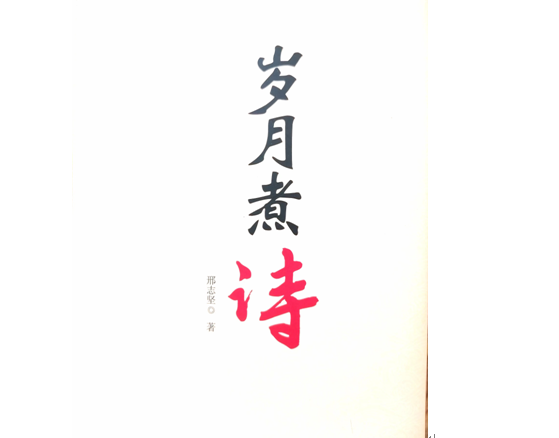 岁月煮诗
邢志坚◎著